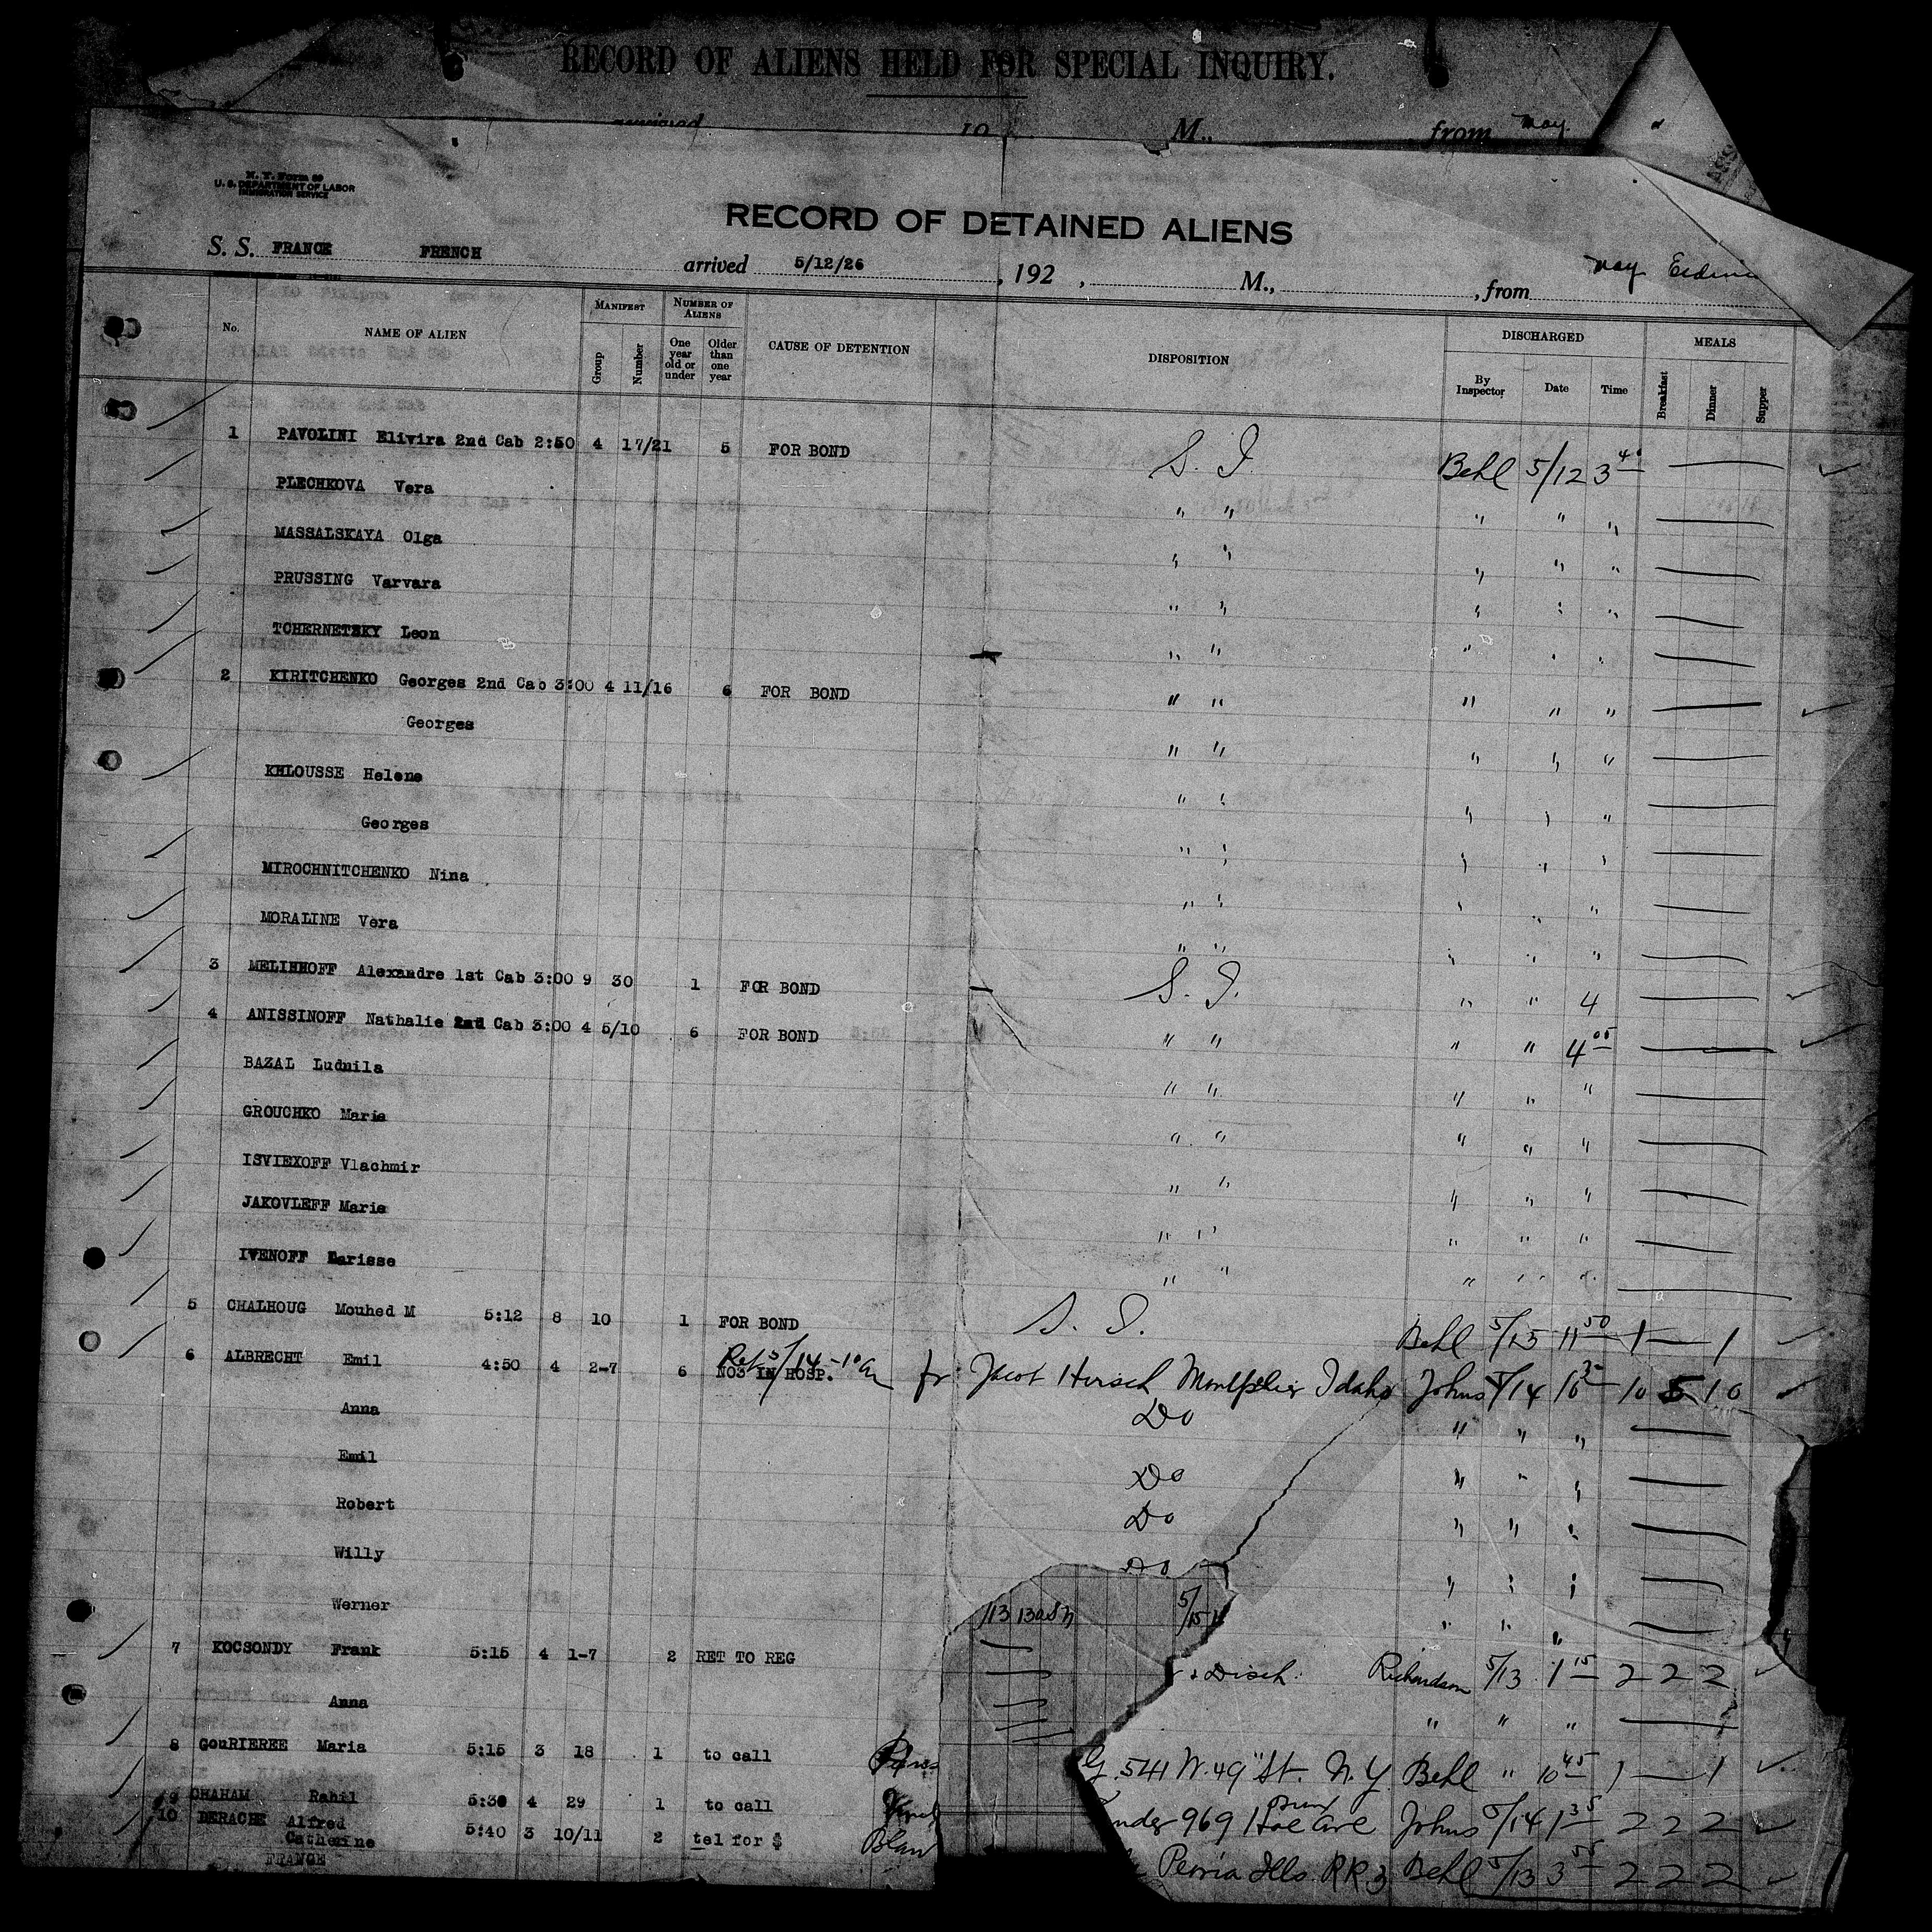 RECORD OF ALIENS HELD FOR SPECIAL INQUIRY.
M., from May
N. Y. Form
U. S. DEPARTMENT OF LABOR
IMMIGRATION SERVICE
RECORD OF DETAINED ALIENS
S. S. FRANCE FRENCH arrived 5/12/26, 192 , M., from
No. NAME OF ALIEN MANIFEST Group Number NUMBER OF ALIENS One year old or under Older than one year CAUSE OF DETENTION DISPOSITION DISCHARGED By Inspector Date Time MEALS Breakfast Dinner Supper
1 PAVOLINI Elivira 2nd Cab 2:50 4 17/21 5 FOR BOND S. I. Behl 5/12 3 40
PLECHKOVA Vera " " " " "
MASSALSKAYA Olga " " " " "
PRUSSING Varvara " " " " "
TCHERNETSKY Leon " " " " "
2 KIRITCHENKO Georges 2nd Cab 3:00 4 11/16 6 FOR BOND " " " " "
Georges " " " " "
KHLOUSSE Helene " " " " "
Georges " " " " "
MIROCHNITCHENKO Nina " " " " "
MORALINE Vera " " " " "
3 MELIHHOFF Alexandre 1st Cab 3:00 9 30 1 FOR BOND S. I. " " 4
4 ANISSINOFF Nathalie 2nd Cab 3:00 4 5/10 6 FOR BOND " " " " 4 05
BAZAL Ludmila " " " " "
GROUCHKO Marie " " " " "
ISVIEXOFF Vlachmir " " " " "
JAKOVLEFF Marie " " " " "
IVENOFF Larisse " " " " "
5 CHALHOUG Mouhed M 5:12 8 10 1 FOR BOND S. I. Behl 5/13 11 50 1 — 1
6 ALBRECHT Emil 4:50 4 2-7 6 NO3 IN HOSP. Ret 5/14 fr Jacob Hirsch Montpelier Idaho Johns 5/14 10 10 5 10
Anna Do " " "
Emil Do " " "
Robert Do " " "
Willy Do " " "
Werner 5/15 " " "
7 KOCSONDY Frank 5:15 4 1-7 2 RET TO REG Disch. Richardson 5/13 1 15 2 2 2
Anna " " "
8 GouRIEREE Maria 5:15 3 18 1 to call 541 W. 49" St. N.Y. Behl " 10 45 1 — 1
9 CHAHAM Rahil 5:30 4 29 1 to call 969 Hoe Ave Johns 5/14 1 35 2 2 2
10 DERACHE Alfred 5:40 3 10/11 2 tel for $ Peoria Ills. RR 3 Behl 5/13 3 55 2 2 2
Catherine
FRANCE